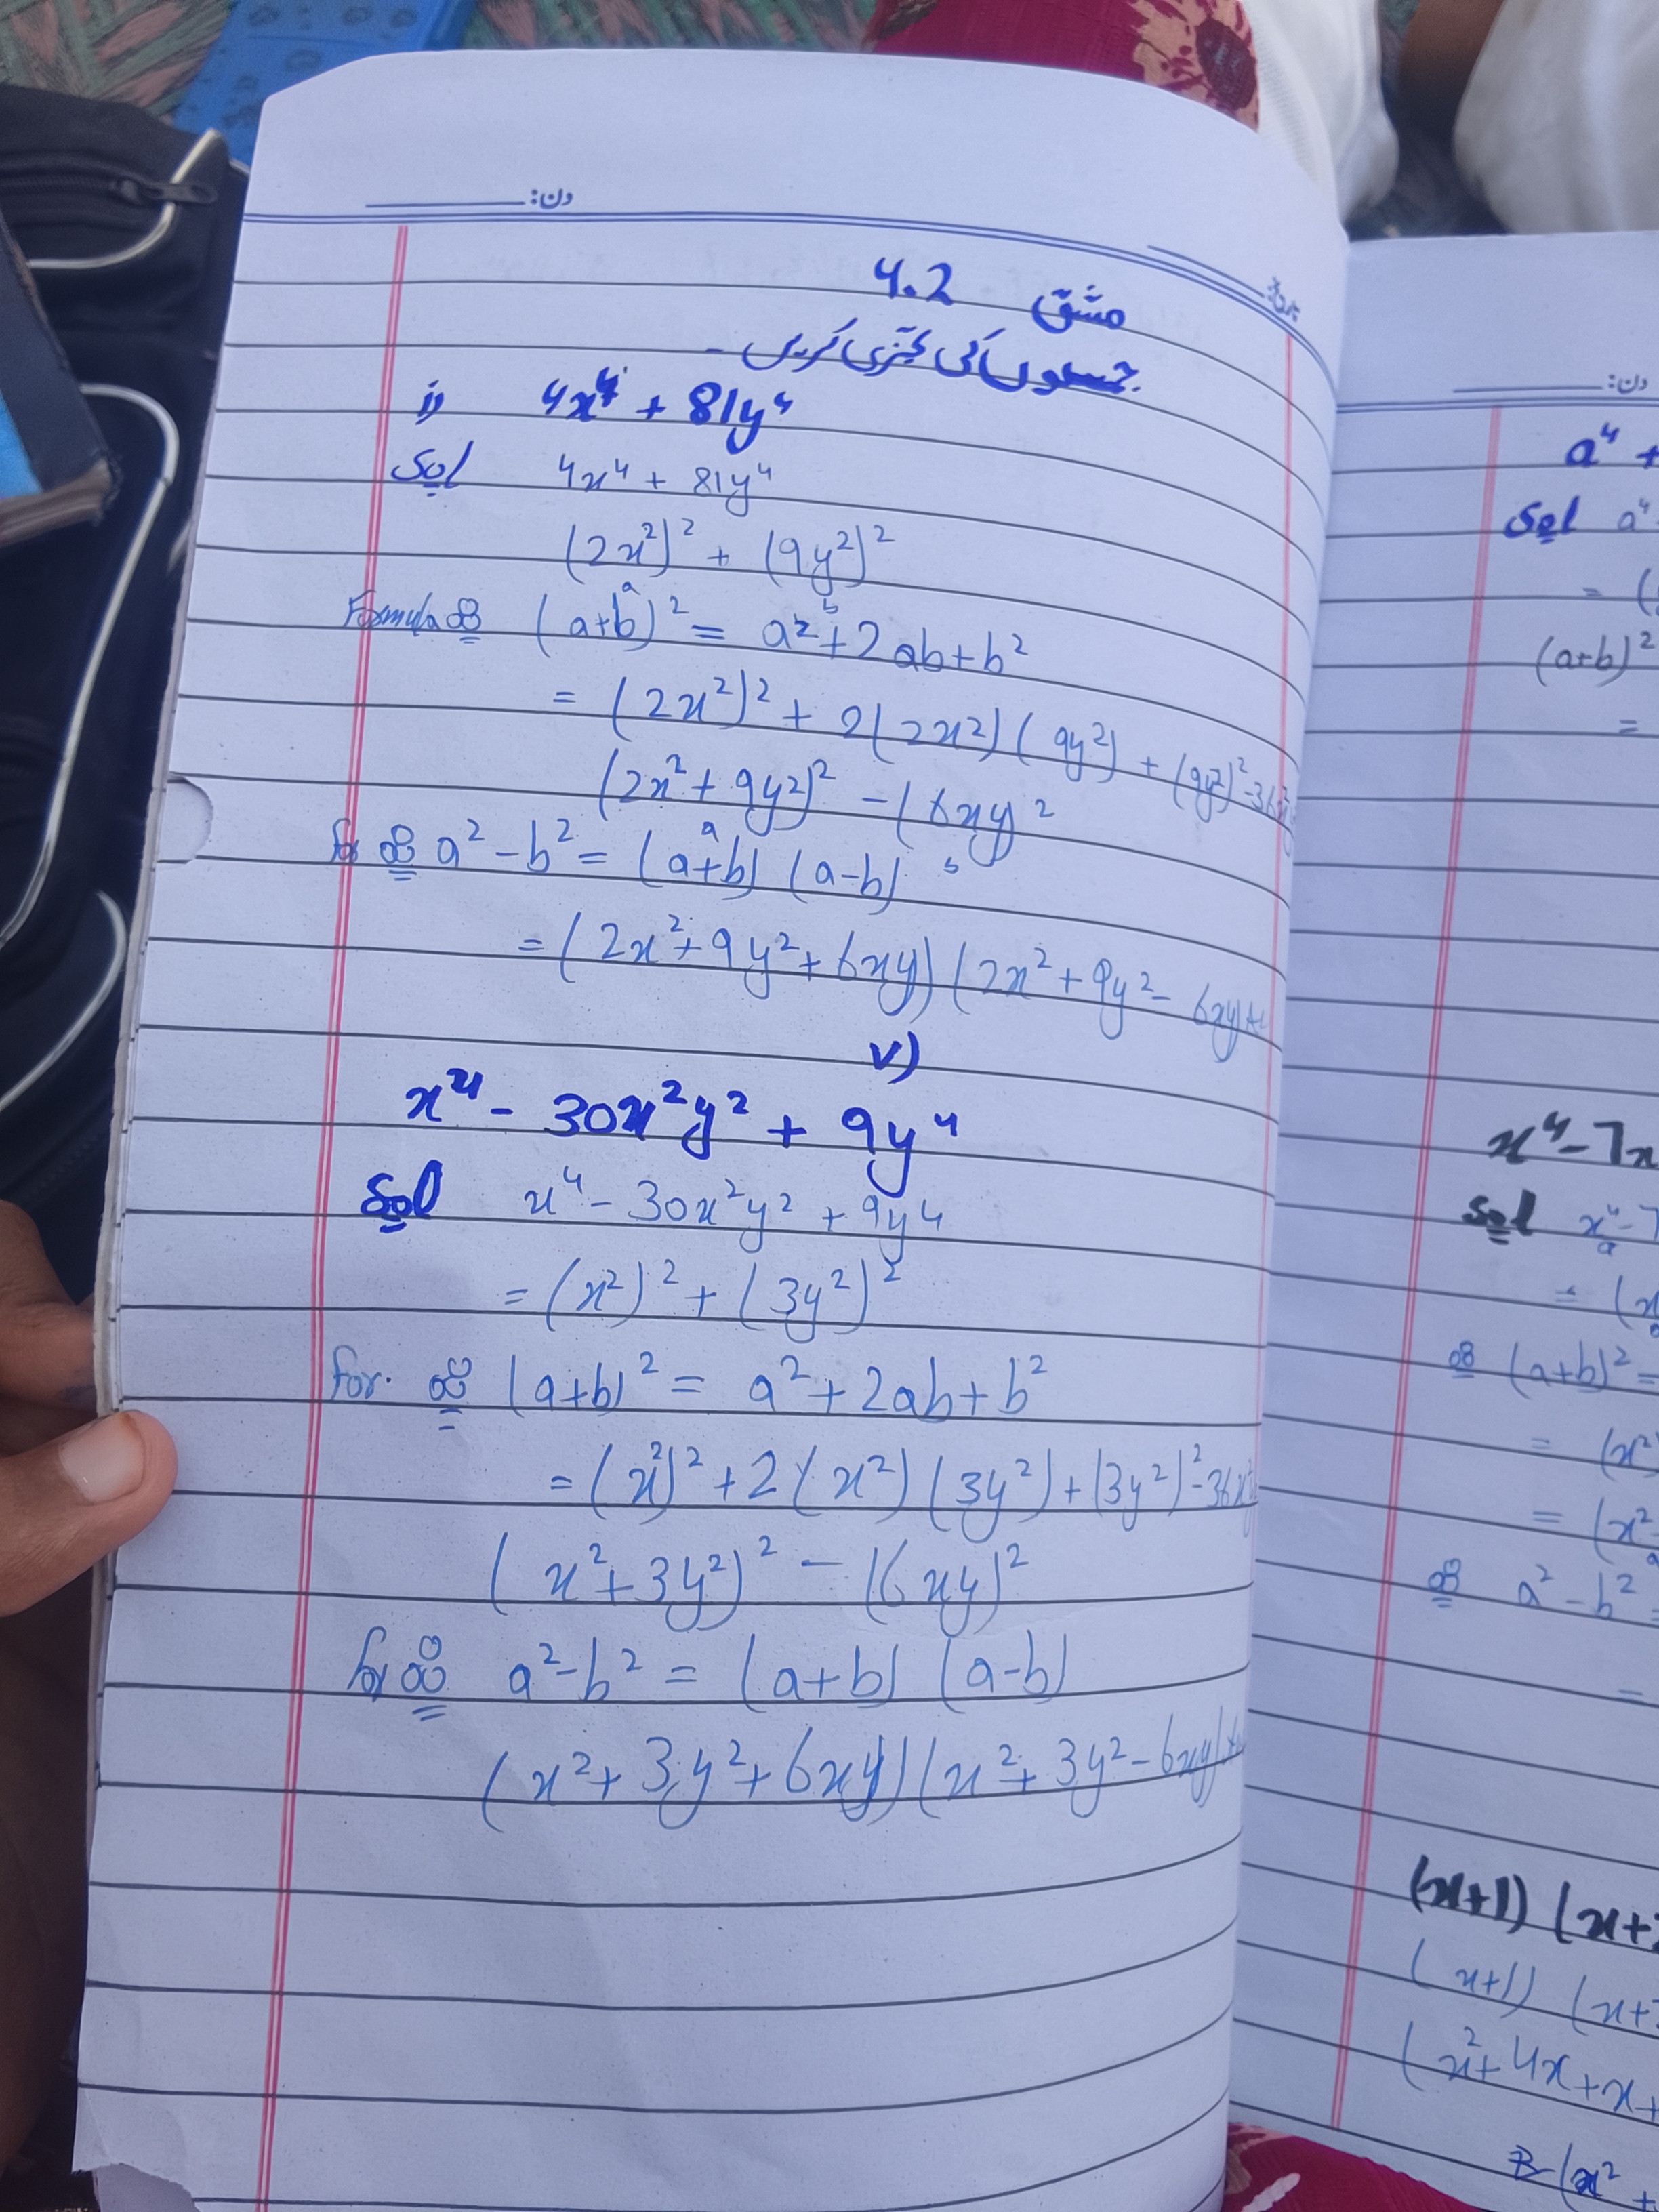 دن:
مشق 4.2
جملوں کی تجزی کریں۔
i) 4x⁴ + 81y⁴
Sol 4x⁴ + 81y⁴
(2x²)² + (9y²)²
a b
Formula (a+b)² = a² + 2ab + b²
= (2x²)² + 2(2x²)(9y²) + (9y²)² - 36x²
(2x² + 9y²)² - (6xy)²
a b
for a² - b² = (a+b) (a-b)
= (2x² + 9y² + 6xy) (2x² + 9y² - 6xy)
v)
x⁴ - 30x²y² + 9y⁴
Sol x⁴ - 30x²y² + 9y⁴
= (x²)² + (3y²)²
for. (a+b)² = a² + 2ab + b²
= (x²)² + 2(x²)(3y²) + (3y²)² - 36x²
(x² + 3y²)² - (6xy)²
for a² - b² = (a+b) (a-b)
(x² + 3y² + 6xy) (x² + 3y² - 6xy)
دن:
a⁴ +
Sol a⁴
= (
(a+b)²
=
x⁴ - 7x
Sol x⁴ - 7
a
= (x
(a+b)² =
= (x²
= (x²
a² - b² =
=
(x+1) (x+
(x+1) (x+
(x² + 4x + x +
(x² +